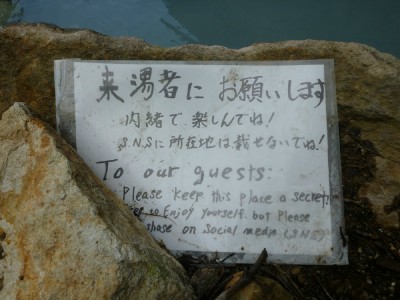 来湯者に お願いします
内緒で 楽しんでね!
S.N.Sに所在地は載せないでね!
To our guests:
Please keep this place a secret
to Enjoy yourself. but Please
share on Social media (SNS)